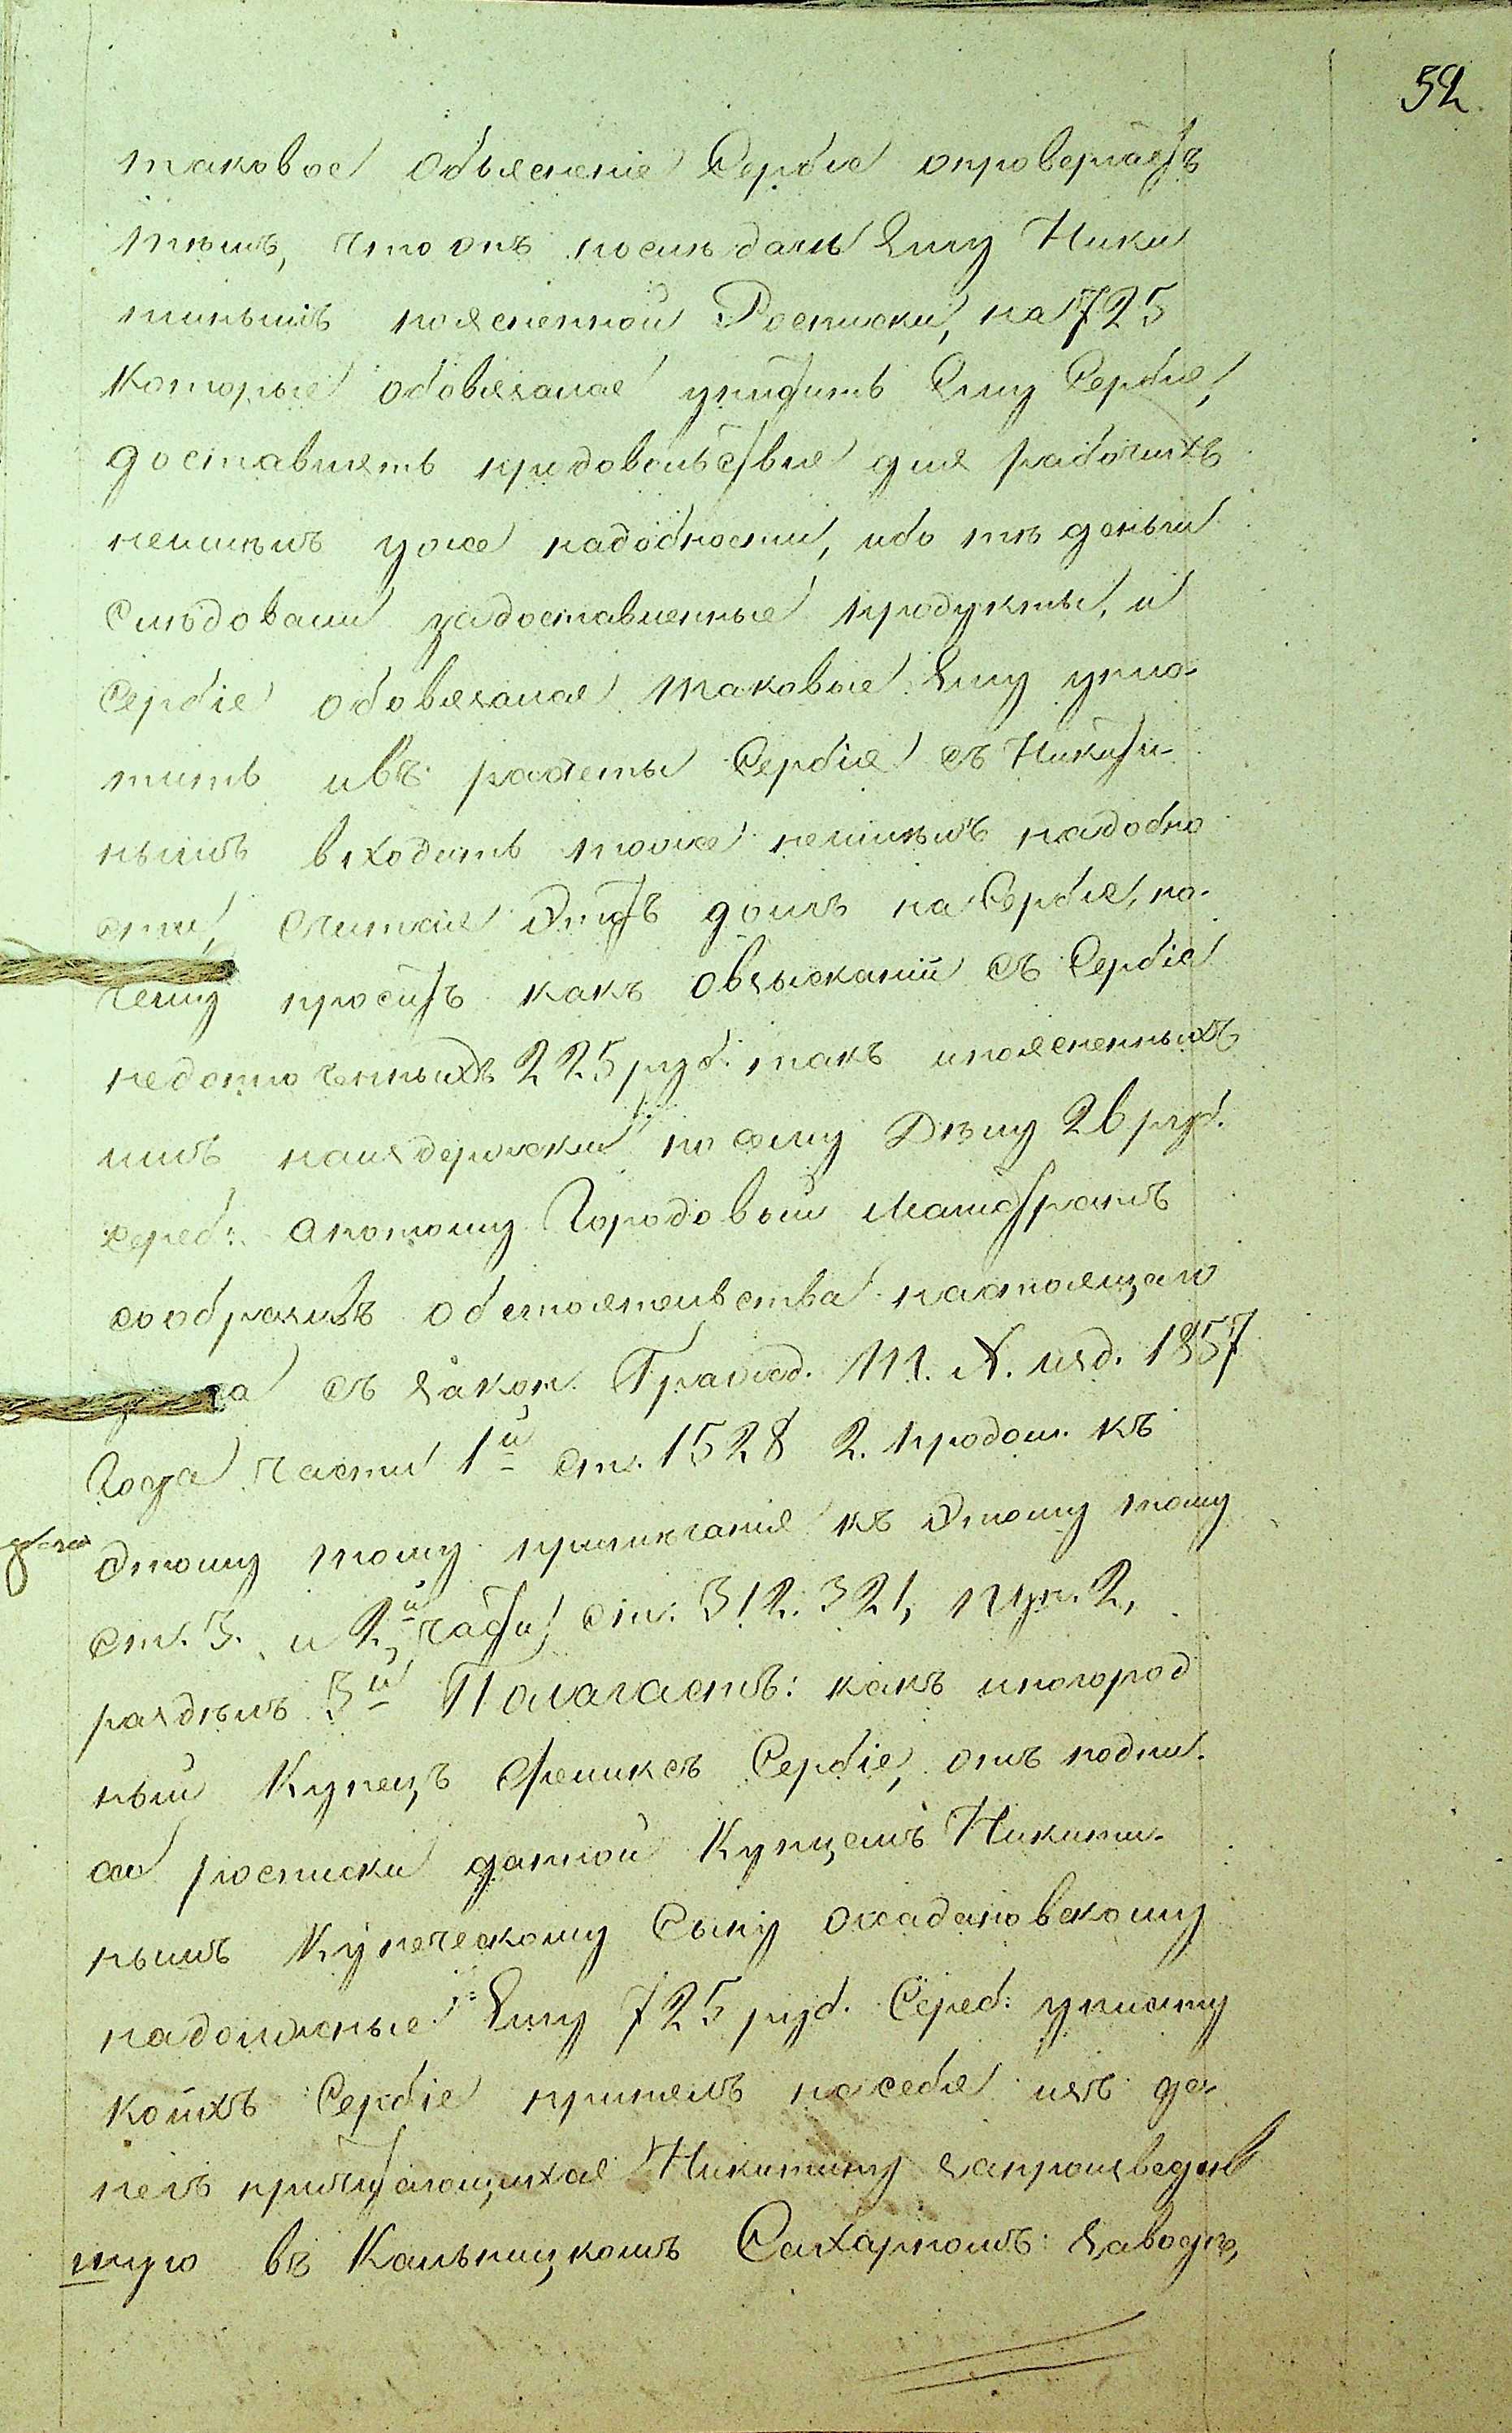 52
таковое объясненіе Сербіе опровергаетъ
тѣмъ, что онъ послѣ дачи Ему Ники
тинымъ поясненной Росписки, на 725
которые обовязался уплатить Ему Сербіе,
доставлять продовольствія для рабочихъ
неимѣлъ уже надобности, ибо тѣ деньги
слѣдовали задоставленные продукты, и
Сербіе обовязался таковые Ему упла-
тить ивъ расчеты Сербіе съ Никити-
нымъ входить тоже неимѣлъ надобно
сти, считая Этотъ долгъ на Сербіе, по-
чему проситъ какъ овзысканіи съ Сербіе
недоплоченныхъ 225 руб. такъ ипоясненныхъ
имъ наиздержки по сему Дѣлу 26 руб.
сереб: апотому Городовый Магистратъ
сообразивъ обстоятельства настоящаго
съ Закон. Гражд. Т. X. изд. 1857
Года части 1й ст. 1528 2. продол. къ
Этому тому примѣчанія къ Этому тому
ст. 3. и 2й части, ст. 312. 321, пун. 2,
раздѣлъ 3й Полагаетъ: какъ иногород
ный Купецъ Феликсъ Сербіе, отъ подпи-
си росписки данной Купцемъ Никити-
нымъ Купеческому Сыну
надолжные Ему 725 руб. Сереб: уплату
коихъ Сербіе принялъ на себя изъ де-
негъ причитающихся Никитину запроизведен
ную въ Кальницкомъ Сахарномъ Заводѣ,